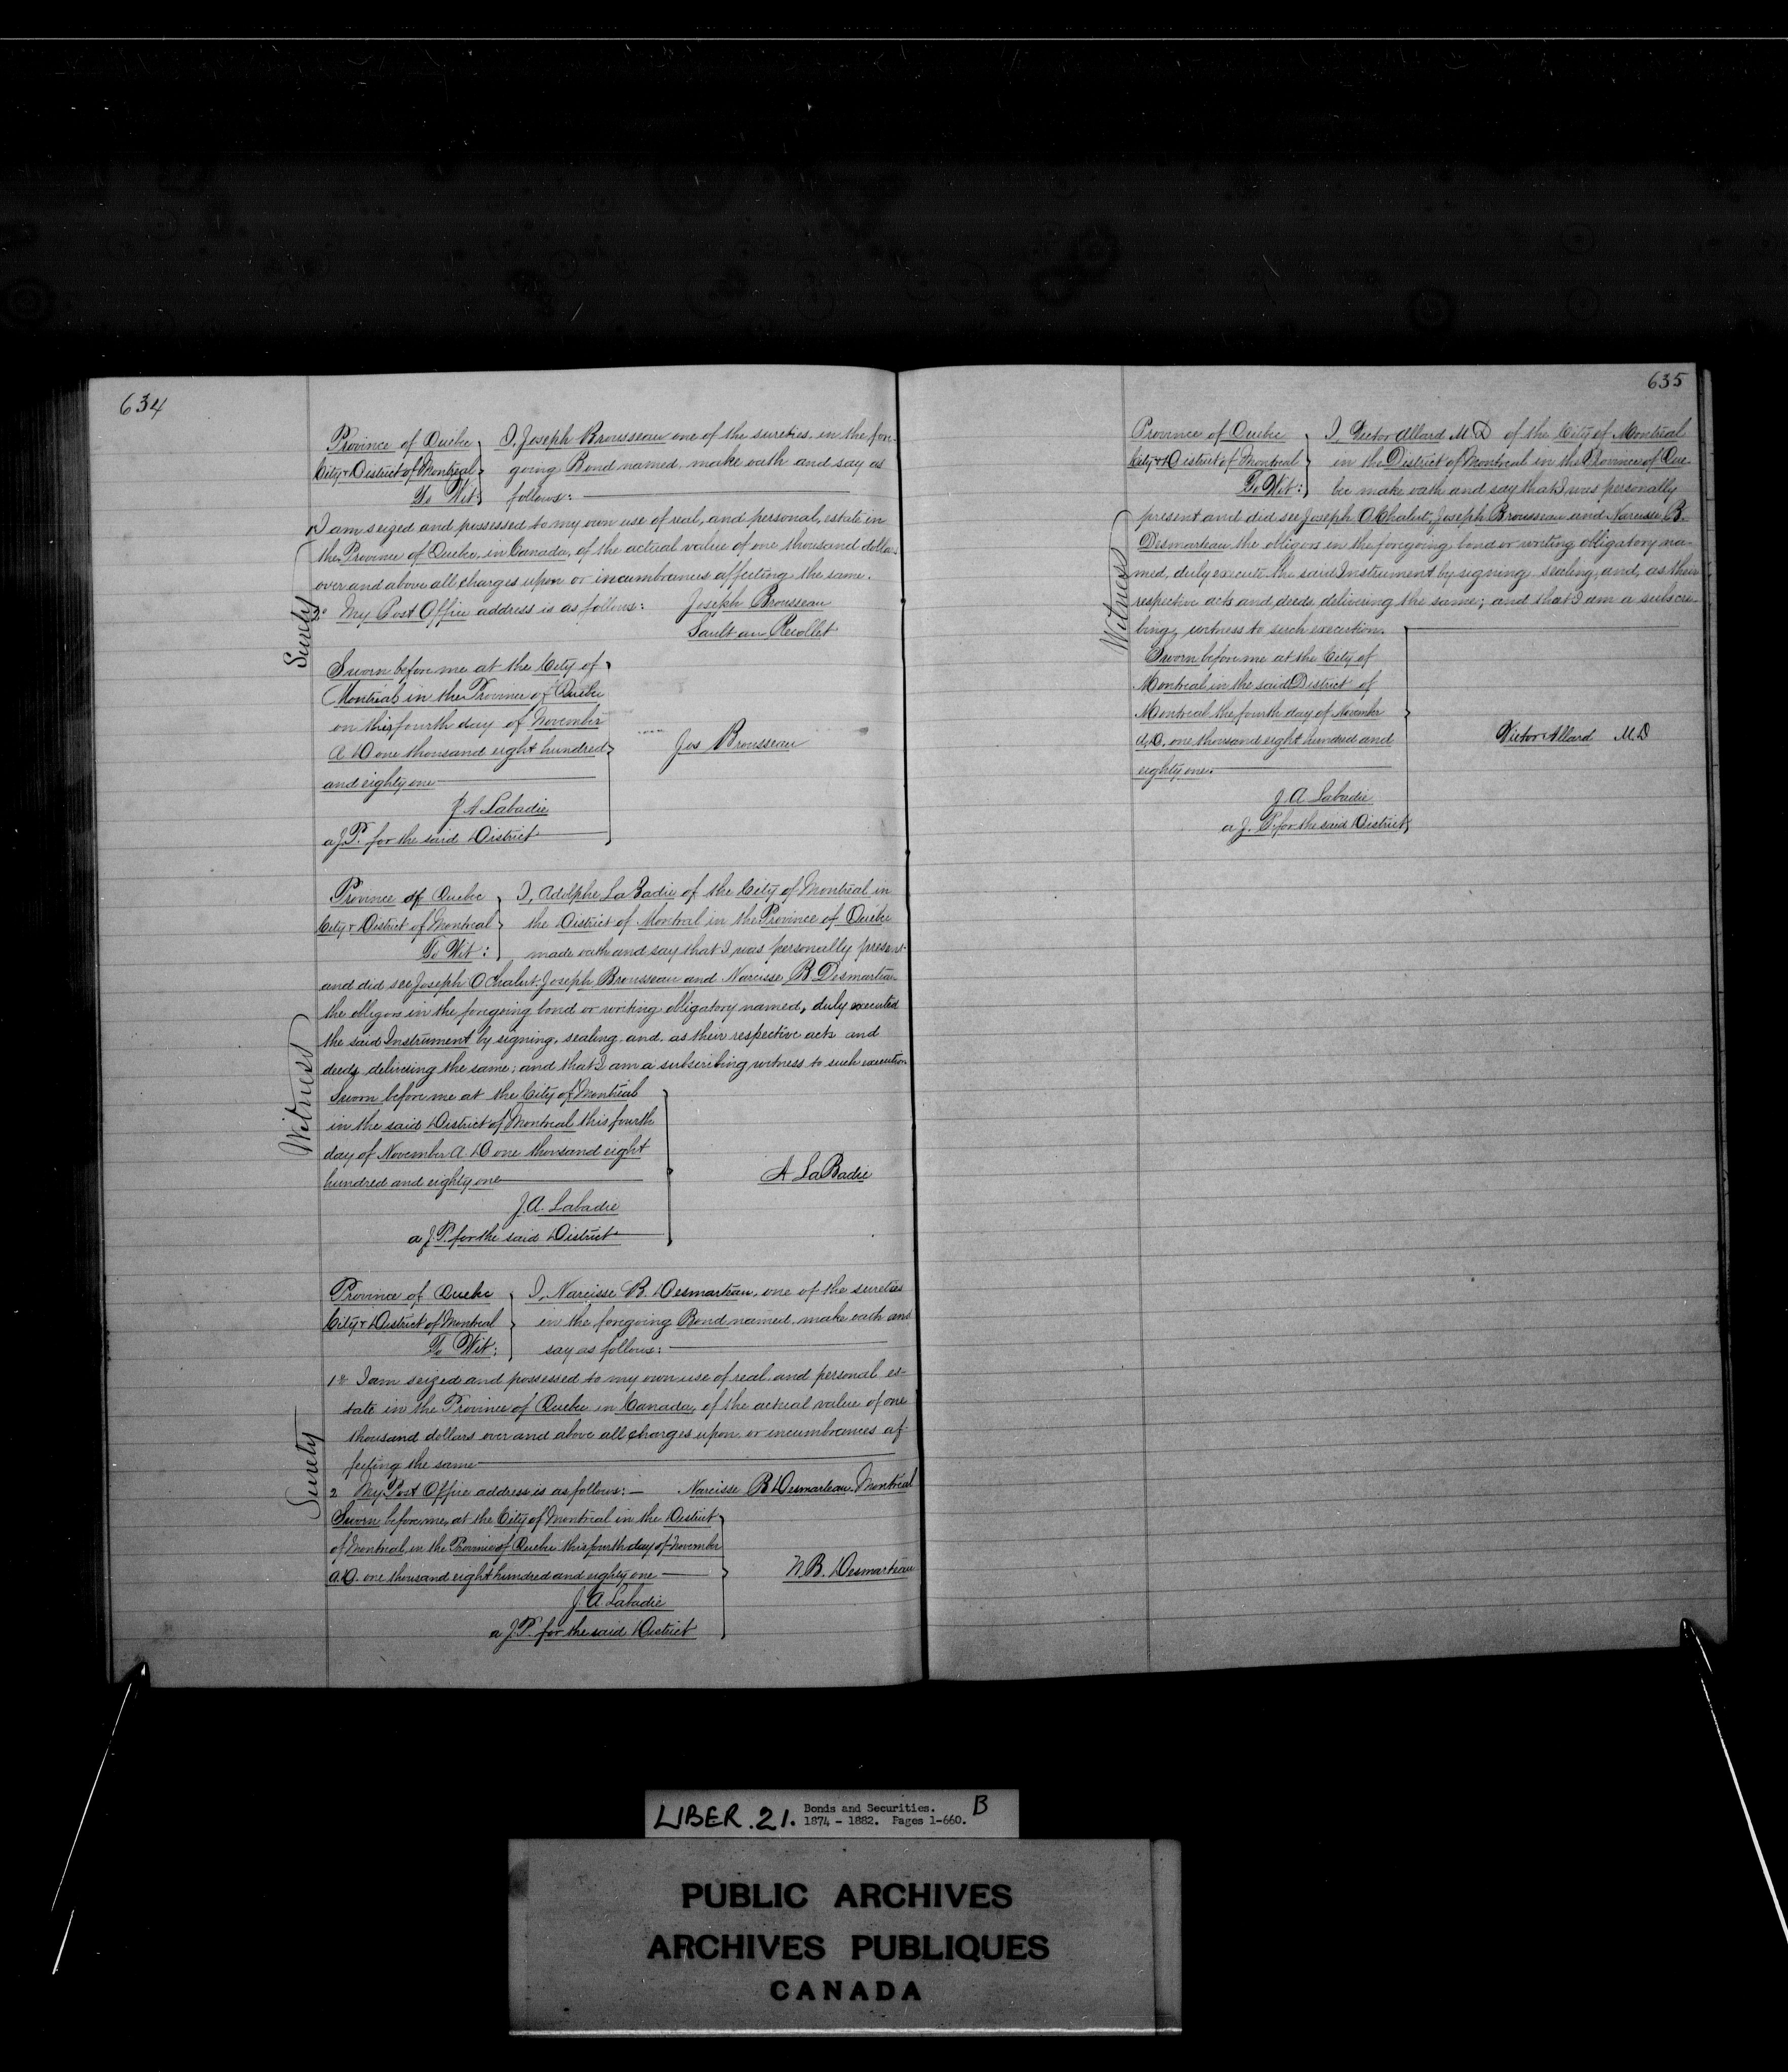 634
Province of Quebec I, Joseph Brousseau one of the sureties in the fore-
City & District of Montreal going Bond named make oath and say as
To Wit: follows:
I am seized and possessed to my own use of real, and personal, estate in
the Province of Quebec, in Canada, of the actual value of one thousand dollars
over and above all charges upon or incumbrances affecting the same.
2° My Post Office address is as follows: Joseph Brousseau
Sault au Recollet
Surety
Sworn before me at the City of
Montreal in the Province of Quebec
on this fourth day of November
A D one thousand eight hundred
and eighty one
Jos Brousseau
J A Labadie
a J.P. for the said District
Province of Quebec I, Adolphe LaBadie of the City of Montreal in
City & District of Montreal the District of Montreal in the Province of Quebec
To Wit: made oath and say that I was personally present
and did see Joseph O Chalut, Joseph Brousseau and Narcisse B Desmarteau
the obligors in the foregoing bond or writing obligatory named, duly executed
the said Instrument by signing, sealing and, as their respective acts and
deeds delivering the same; and that I am a subscribing witness to such execution
Witness
Sworn before me at the City of Montreal
in the said District of Montreal this fourth
day of November A D one thousand eight
hundred and eighty one
A LaBadie
J. A. Labadie
a J.P. for the said District
Province of Quebec I, Narcisse B. Desmarteau, one of the sureties
City & District of Montreal in the foregoing Bond named make oath and
To Wit: say as follows:
1° I am seized and possessed to my own use of real and personal es-
tate in the Province of Quebec in Canada, of the actual value of one
thousand dollars over and above all charges upon or incumbrances af-
fecting the same
Surety
2 My Post Office address is as follows:— Narcisse B Desmarteau Montreal
Sworn before me, at the City of Montreal in the District
of Montreal in the Province of Quebec this fourth day of November
A.D. one thousand eight hundred and eighty one
N.B. Desmarteau
J. A Labadie
a J.P. for the said District
635
Province of Quebec I, Victor Allard M D of the City of Montreal
City & District of Montreal in the District of Montreal in the Province of Que-
To Wit: bec make oath and say that I was personally
present and did see Joseph O Chalut, Joseph Brousseau and Narcisse B.
Desmarteau the obligors in the foregoing bond or writing obligatory na-
med, duly execute the said Instrument by signing sealing, and, as their
respective acts and deeds delivering the same; and that I am a subscri-
bing witness to such execution.
Witness
Sworn before me at the City of
Montreal in the said District of
Montreal the fourth day of November
A.D. one thousand eight hundred and
eighty one.
Victor Allard M.D
J. A Labadie
a J. P. for the said District
LIBER. 21. Bonds and Securities. B
1874 - 1882. Pages 1-660.
PUBLIC ARCHIVES
ARCHIVES PUBLIQUES
CANADA